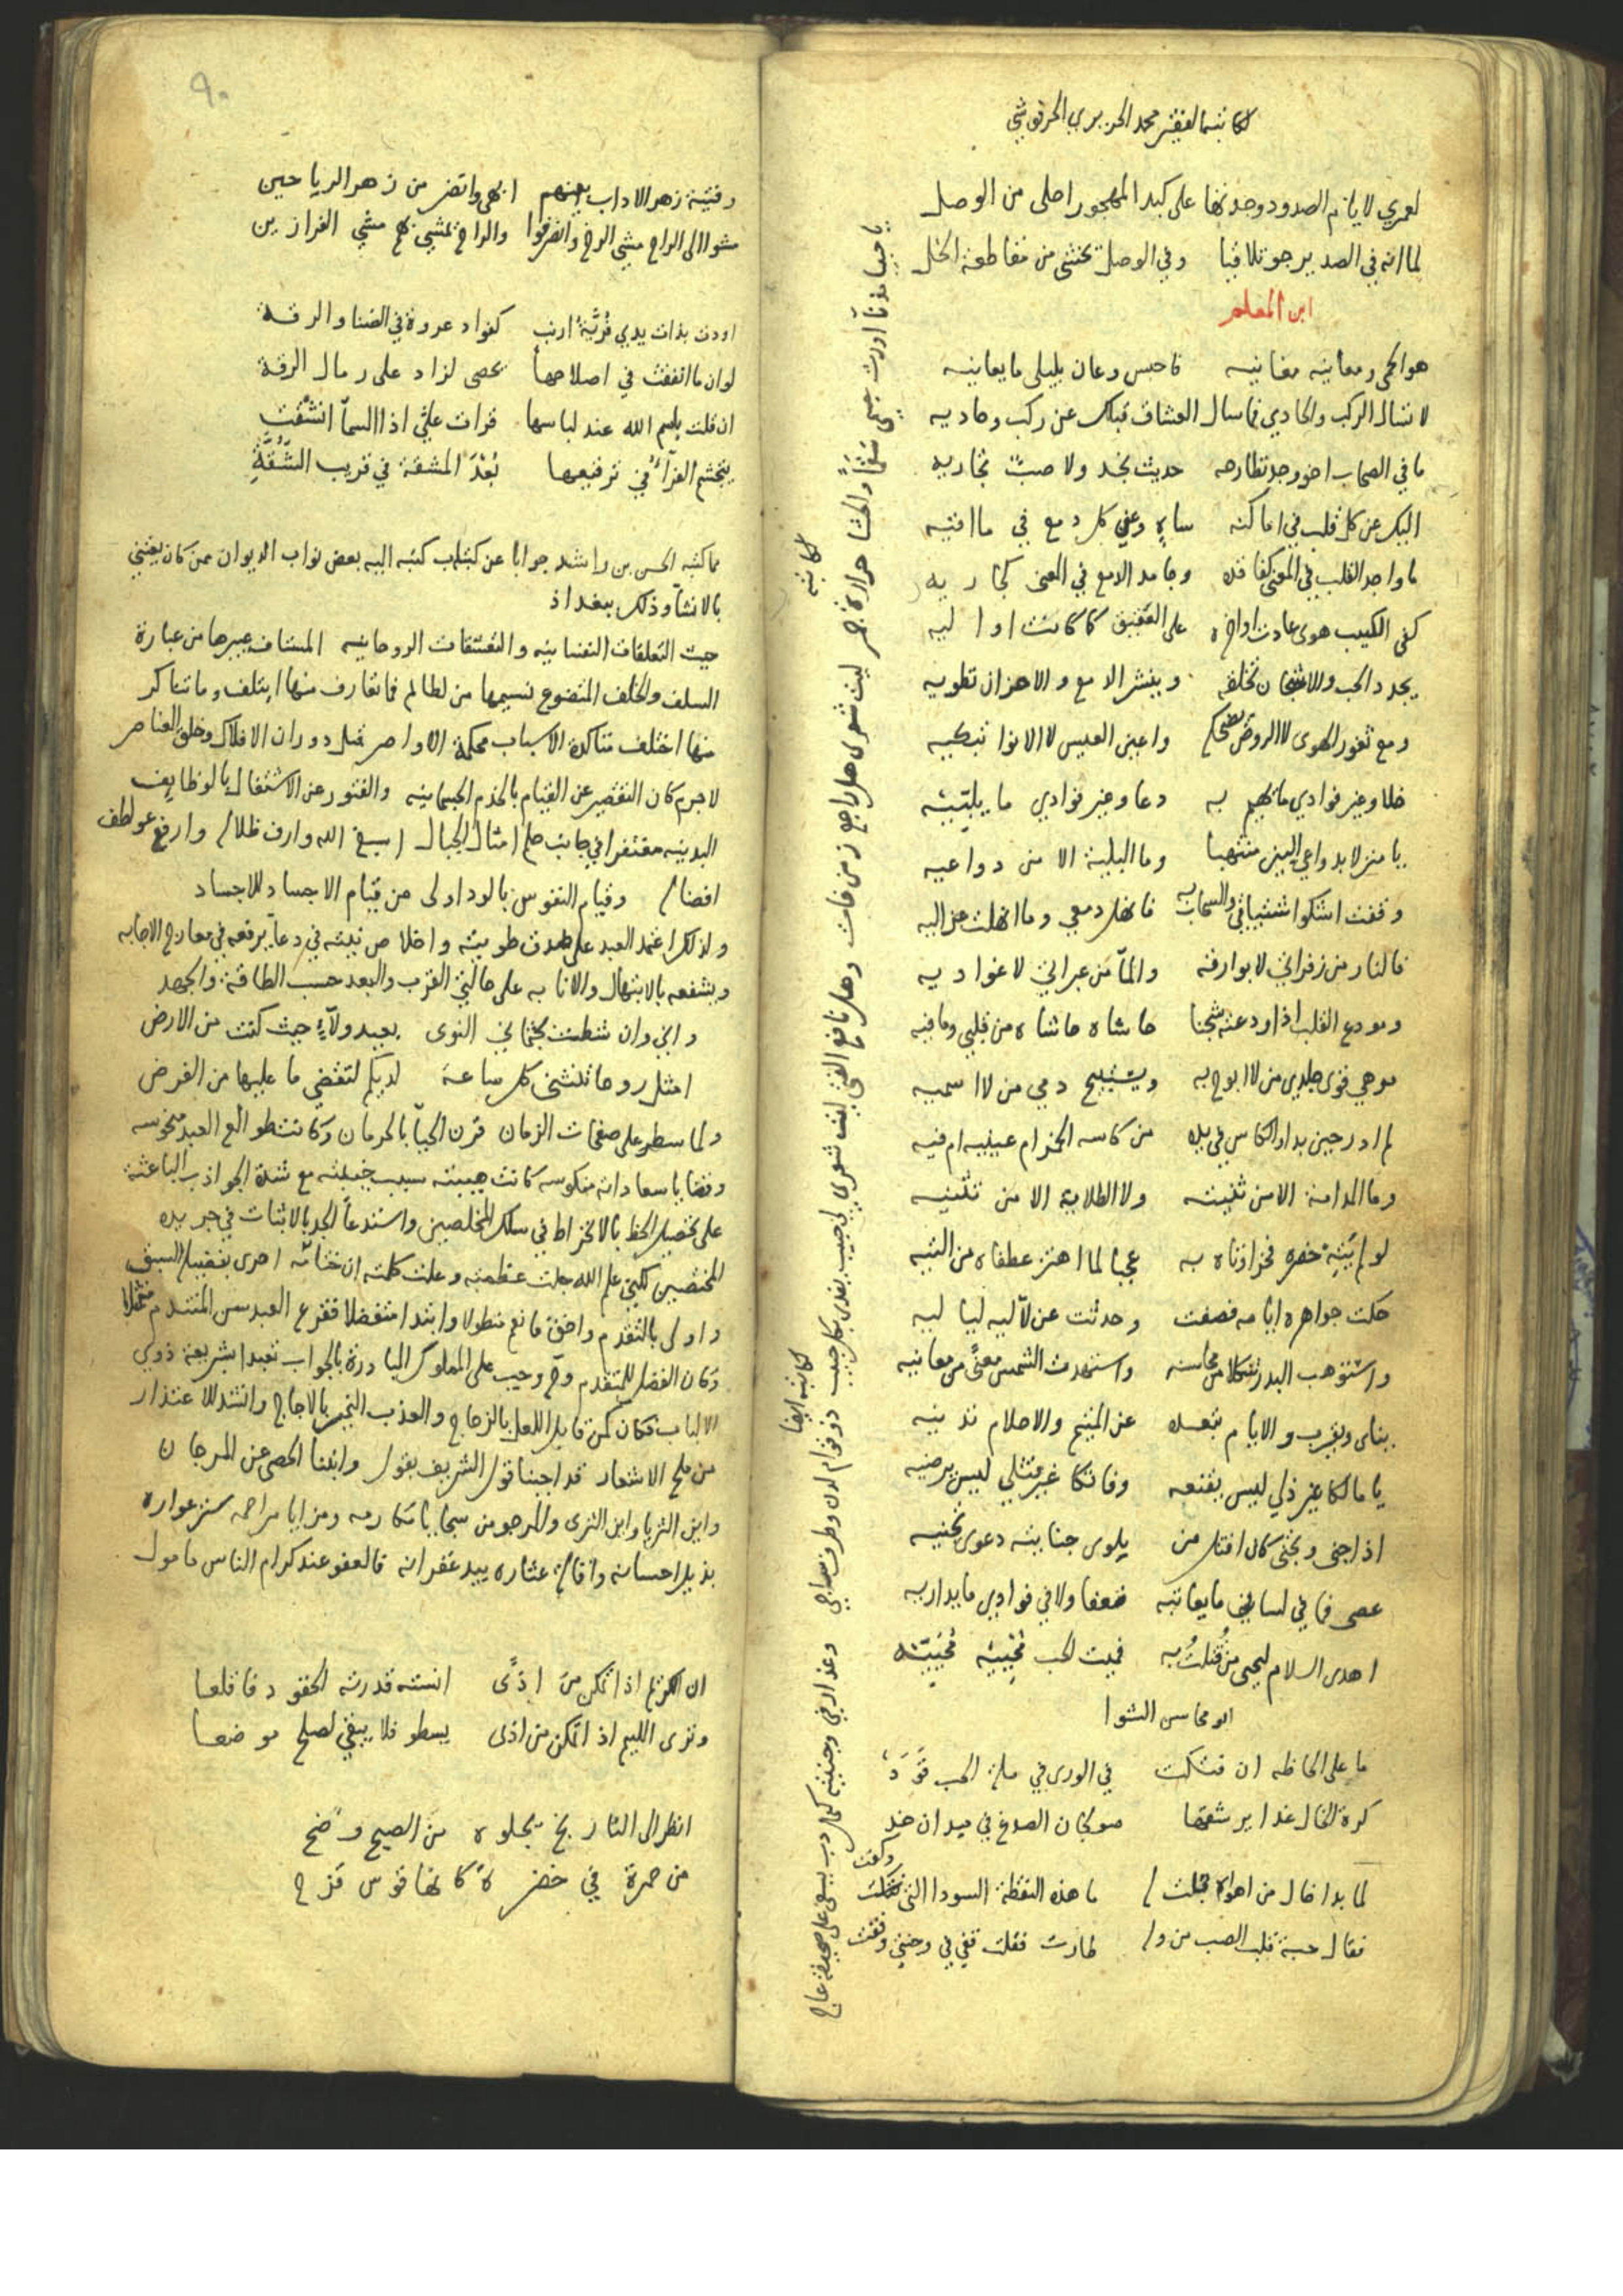 لكاتبها الفقير محمد الحريري الحرفوشي
لعمري لايام الصدود وجدتها على كبد المهجور احلى من الوصل
لما انه في الصد يرجو تلاقيا وفي الوصل تخشى من مقاطعة الخل
ابن المعلم
هو الحمى ومعانيه مغانيه فاحبس وعان بليلى ما يعانيه
لا تسال الركب والحادي فما سال العشاق قبلك عن ركب وحاديه
ما في الصحاب اخو وجد تطارحه حديث نجد ولا صب تجاريه
اليك عن كل قلب في اماكنه ساه وعن كل دمع في ماافيه
ما واجد القلب في المعنى كفاقده وجامد الدمع في المعنى كجاريه
كفى الكييب هوى عادت اواخره على العقيق كما كانت اواليه
يجدد الحب والاشجان تخلقه وينشر الدمع والاحزان تطويه
دمع ثغور الهوى لا الروض تضحكه واعين العيس لا الانوا تبكيه
خلا وغير فوادي ما تهيم به دعا وغير فوادي ما يلبيه
يا منزلا بدواعي البين منتهبا وما البلية الا من دواعيه
وقفت اشكوا اشتياقي والسحاب به فانهل دمعي وما انهلت عزاليه
فالنار من زفراتي لا بوارقه والمآ من عبراتي لا غواديه
ومودع القلب اذ اودعته شجنا حاشاه حاشاه من قلبي وما فيه
موهي قوى جلدي من لا ابوح به ويستبيح دمي من لا اسميه
لم ادر حين بدا والكاس في يده من كاسه الخمر ام عينيه ام فيه
وما المدامة الا من ثنيته ولا الطلاية الا من تثنيه
لو لم يتيه خصره فخر اذ ناه به عجبا لما اهتز عطفاه من التيه
حكت جواهره ايامه فصفت وحدثت عن لآليه لياليه
واستوهب البدر شكلا من محاسنه واستهدت الشمس معنى من معانيه
يناى ويقرب والايام تبعده عن المتيم والاحلام تدنيه
يا مالكا غير ذلي ليس يقنعه وفاتكا غير قتلي ليس يرضيه
اذا جنى وتجنى كان افتك من يلوى جنايته دعوى تجنيه
عصى فما في لساني ما يعاتبه ضعفا ولا في فوادي ما يداريه
اهدى السلام ليحيى من قتلت به فميت الحب تحييه تحيته
ابو محاسن الشوا
ما على الحاظه ان فتكت في الورى في ملة الحب قود
كرة الخال غدا يرشقها صولجان الصدغ في ميدان خد
لما بدا خال من اهواه قلت له ما هذه النقطة السودا التي شكلت وكفت
فقال حبة قلب الصب من وله طارت فقلت قفي في وجنتي وقفت
لكاتبه
ليت شعرى هل راجع زمن فات وهل نافع الفتى ليت شعري
لكاتبه ايضا
لي حبيب يفدى بكل حبيب ذو قوام لدن وطرف ساجي
وعذار في وجنتيه كنمل دب يسعى على صحيفة عاج
٩٠
وفتية زهر الاداب بينهم ابهى وانضر من زهر الرياحين
مشوا الى الراح مشي الرخ وانصرفوا والراح تمشي بهم مشي الفرازين
اودت بذات يدي فرية ارنب كفواد عروة في الضنا والرقة
لو ان ما انفقت في اصلاحها يحصى لزاد على رمال الرقة
ان قلت بسم الله عند لباسها قرات علي اذا السمآ انشقت
يتجشم الفرآ في ترقيعها بعد المشقة في قريب الشقة
مما كتبه الحسن بن راشد جوابا عن كتاب كتبه اليه بعض نواب الديوان ممن كان يعتني
بالانشآ وذلك ببغداذ
حيث التعلقات النفسانيه والتعشقات الروحانيه المستاف عبيرها من عبارة
السلف والخلف المتضوع نسيمها من لطايم فما تعارف منها ايتلف وما تناكر
منها اختلف متاكدة الاسباب محكمة الاواصر قبل دوران الافلاك وخلق العناصر
لا جرم كان التقصير عن القيام بالخدم الجسمانيه والفتور عن الاشتغال بالوظايف
البدنيه مغتفرا في جانب حلم امثال الجبال اسبغ الله وارف ظلاله وارفع عواطف
افضاله وقيام النفوس بالود اولى من قيام الاجساد للاجساد
ولذلك اعتمد العبد على صدق طويته واخلاص نيته في دعآ يرفعه في معارج الاجابه
ويشفعه بالابتهال والانابه على حالتي القرب والبعد حسب الطاقة والجهد
واني وان شطت بجثماني النوى بعيد ولآيي حيث كنت من الارض
امثل روحا تنثني كل ساعة لديكم لتقضي ما عليها من الفرض
ولما سطر على صفحات الزمان قرن الحيآ بالحرمان وكانت طوالع العبد منحوسه
وقضايا سعاداته منكوسه كانت هيبته سبب خيبته مع شدة الجواذب الباعثة
على تحصيل الحظ بالانخراط في سلك المخلصين واستدعآ الجد بالاثبات في جريده
المختصين لكن علم الله جلت عظمته وعلت كلمته ان جنابه احرى بفضيلة السبق
واولى بالتقدم واحق فانعم متطولا وابتدا متفضلا فقرع العبد سن المتندم متخجلا
وكان الفضل للمتقدم وح وجب على المملوك المبادرة بالجواب تعبدا بشريعة ذوي
الالباب فكان كمن قابل اللعل بالزجاج والعذب النمير بالاجاج وانشد للاعتذار
من ملح الاشعار قد اجبنا قول الشريف بقول وابعنا الحصى عن المرجان
واين الثريا واين الثرى والمرجو من سجايا مكارمه ومزايا مراحمه ستر عواره
بذيل احسانه واقالة عثاره بيد غفرانه فالعفو عند كرام الناس مامول
ان الكريم اذا تمكن من اذى انسته قدرته الحقود فاقلعا
وترى الليم اذا تمكن من اذى يسطو فلا يبقي لصلح موضعا
انظر الى التاريخ يجلوه من الصبح وضح
من حمرة في خضرة كانها قوس قزح